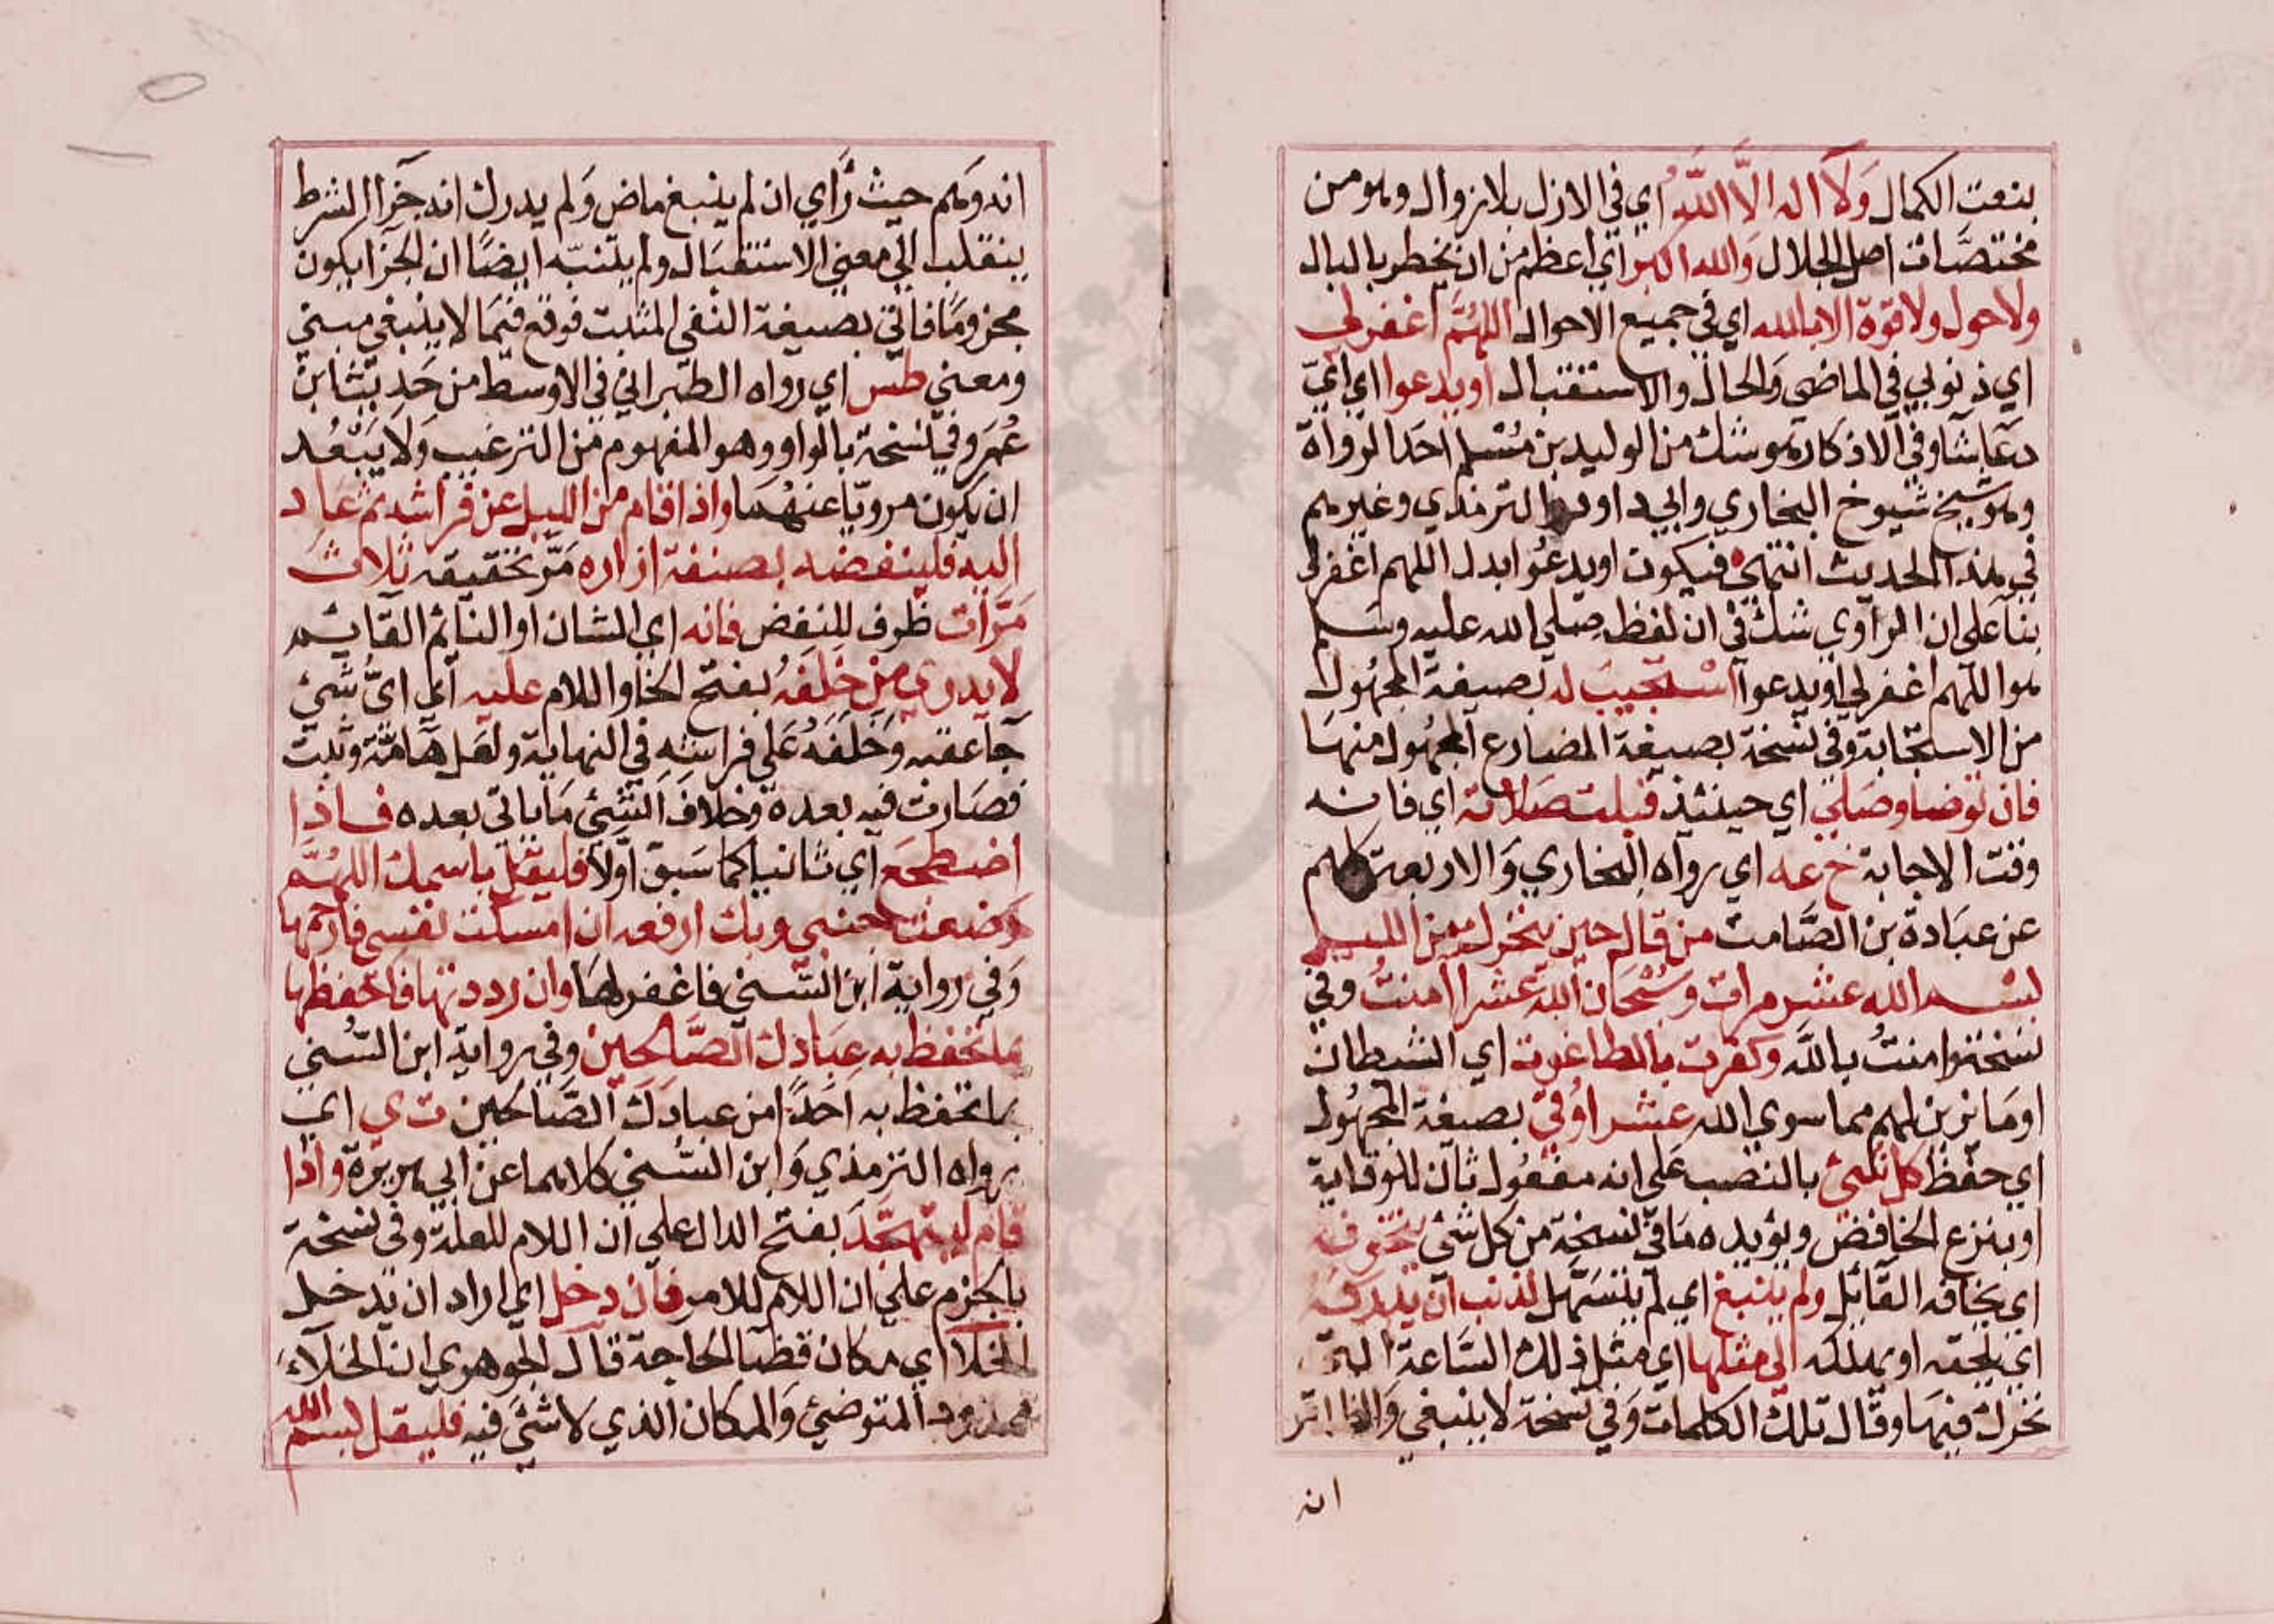 بنعت الكمال وَلَا اله الَّا اللَّهُ اي في الازل بلا زوال وهو من
مختصَّات اهل الجلال وَالله اكبر اي اعظم من ان يخطر بالبال
ولا حول ولا قوة الا بالله اي في جميع الاحوال اللهُمَّ اغفر لي
اي ذنوبي في الماضي وَالحال والاستقبال او يدعوا اي ايّ
دعَا شآ وفي الاذكار هو شك من الوليد بن مُسْلم احَد الرواة
وهو شيخ شيوخ البخاري وابي داود والترمذي وغيرهم
في هذا الحديث انتهي فيكون او يدعُوا بدل اللهم اغفر لي
بنَآ علي ان الراوي شك في ان لفظه صلي الله عليه وسَلم
هو اللهم اغفر لي او يدعوا اسْتجيبَ له بصيغة المجهُول
من الاستجَابة وفي نسْخة بصيغة المضارع المجهُول منهَا
فان توضا وصَلي اي حينئذ قبلت صَلاته اي فانه
وقت الاجابة خ عه اي رواه البخاري وَالاربعة كلهم
عن عبَادة بن الصَّامت من قال حين يتحرك من الليل
بسْم الله عشر مرات وسُبْحَان الله عَشرا امنتُ وفي
نسَخة وامنتُ باللَّه وكفرت بالطاغوت اي الشيطان
او مَا يزين لهم مما سوي الله عشرا وُقيَ بصيغة المجهُول
اي حفظ كل شئ بالنصب عَلي انه مفعُول ثان للوقاية
او بنزع الخافض ويؤيده مَا في نسخة من كل شئ يتخوفه
اي يخافه القَائل ولم ينبغ اي لم يتسَهّل لذنب ان يدركه
اي يلحقه او يهلكه الي مثلها اي مثل ذلك السَّاعة التي
تحرك فيهَا وقال تلك الكلمات وَفي نسْخة لا ينبغي وَالظاهر
انه
انه وَهم حيث رَأي ان لم ينبغ ماض وَلم يدرك انه جَزَا الشرط
ينقلب الي معني الاستقبَال ولم يتنبّه ايضًا ان الجزا يكون
مجزومًا فاتي بصيغة النفي المثبت فوقع فيمَا لا ينبغي مبني
ومعني طس اي رواه الطّبراني في الاوسط من حَديث ابن
عُمَر وفي نسْخة بالواو وهو المفهوم من الترغيب وَلا يَبْعُد
ان يكون مرويًا عنهُمَا واذا قام من الليل عن فراشه ثم عاد
اليه فلينفضه بصنفة ازاره مَرّ تحقيقه ثلاث
مَرَّات ظرف للنفض فانه اي الشان او النائم القَائم
لا يدري مَن خَلَفَهُ بفتح الخا واللام عليه اي ايُّ شَيْئ
جَآ عقبه وَخَلَفَهُ عَلي فراشه في النهاية ولعَل هَآمَّة وثبت
فصَارت فيه بعده وخلاف الشئ مَا ياتي بعده فاذا
اضطجَع اي ثانيا كما سَبق اوّلا فليقل باسمك اللهُمَّ
وضعت جنبي وبك ارفعه ان امسكت نفسي فارحمها
وَفي رواية ابن السّني فاغفر لهَا وان رددتها فاحفظها
بما تحفظ به عِبَادك الصَّالحين وفي رواية ابن السُّني
بما تحفظ به اَحَدًا من عبَادَك الصَّالحين ت ي اي
رواه الترمذي وَابن السُّني كلاهما عن ابي هريرة واذا
قام ليتهجّدَ بفتح الدال علي ان اللام للعلة وفي نسْخة
بالجزم علي ان اللام للامر فان دخل اي اراد ان يدخل
الخلا اي مكان قضَآ الحَاجة قال الجوهري ان الخلآءَ
ممدود المتوضئ وَالمكان الذي لا شئَ فيه فليقل بسْم الله